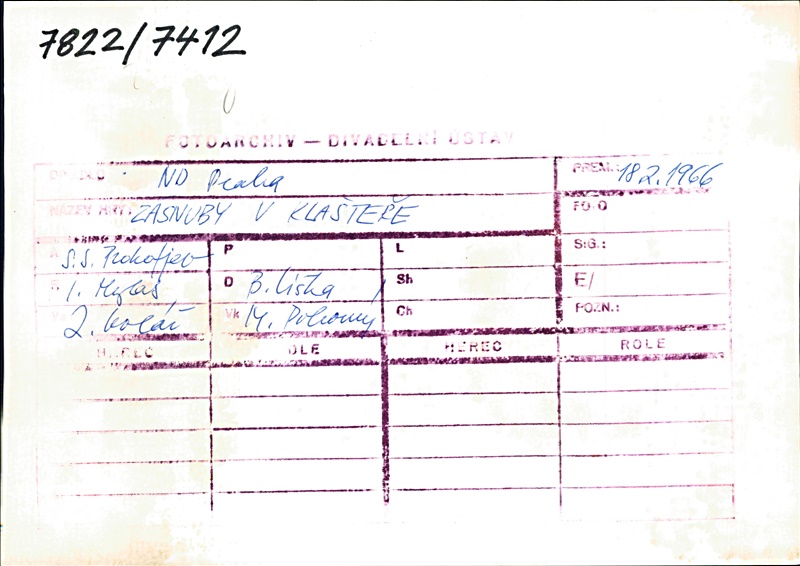 7822/7412
FOTOARCHIV — DIVADELNÍ ÚSTAV
DIVADLO: ND Praha PREM.: 18.2.1966
NÁZEV HRY: ZÁSNUBY V KLÁŠTEŘE FOTO
A S.S. Prokofjev P L SIG.:
R O B. Liška Sh E/
Z. Kolář Vk M. Pokorný Ch POZN.:
HEREC ROLE HEREC ROLE